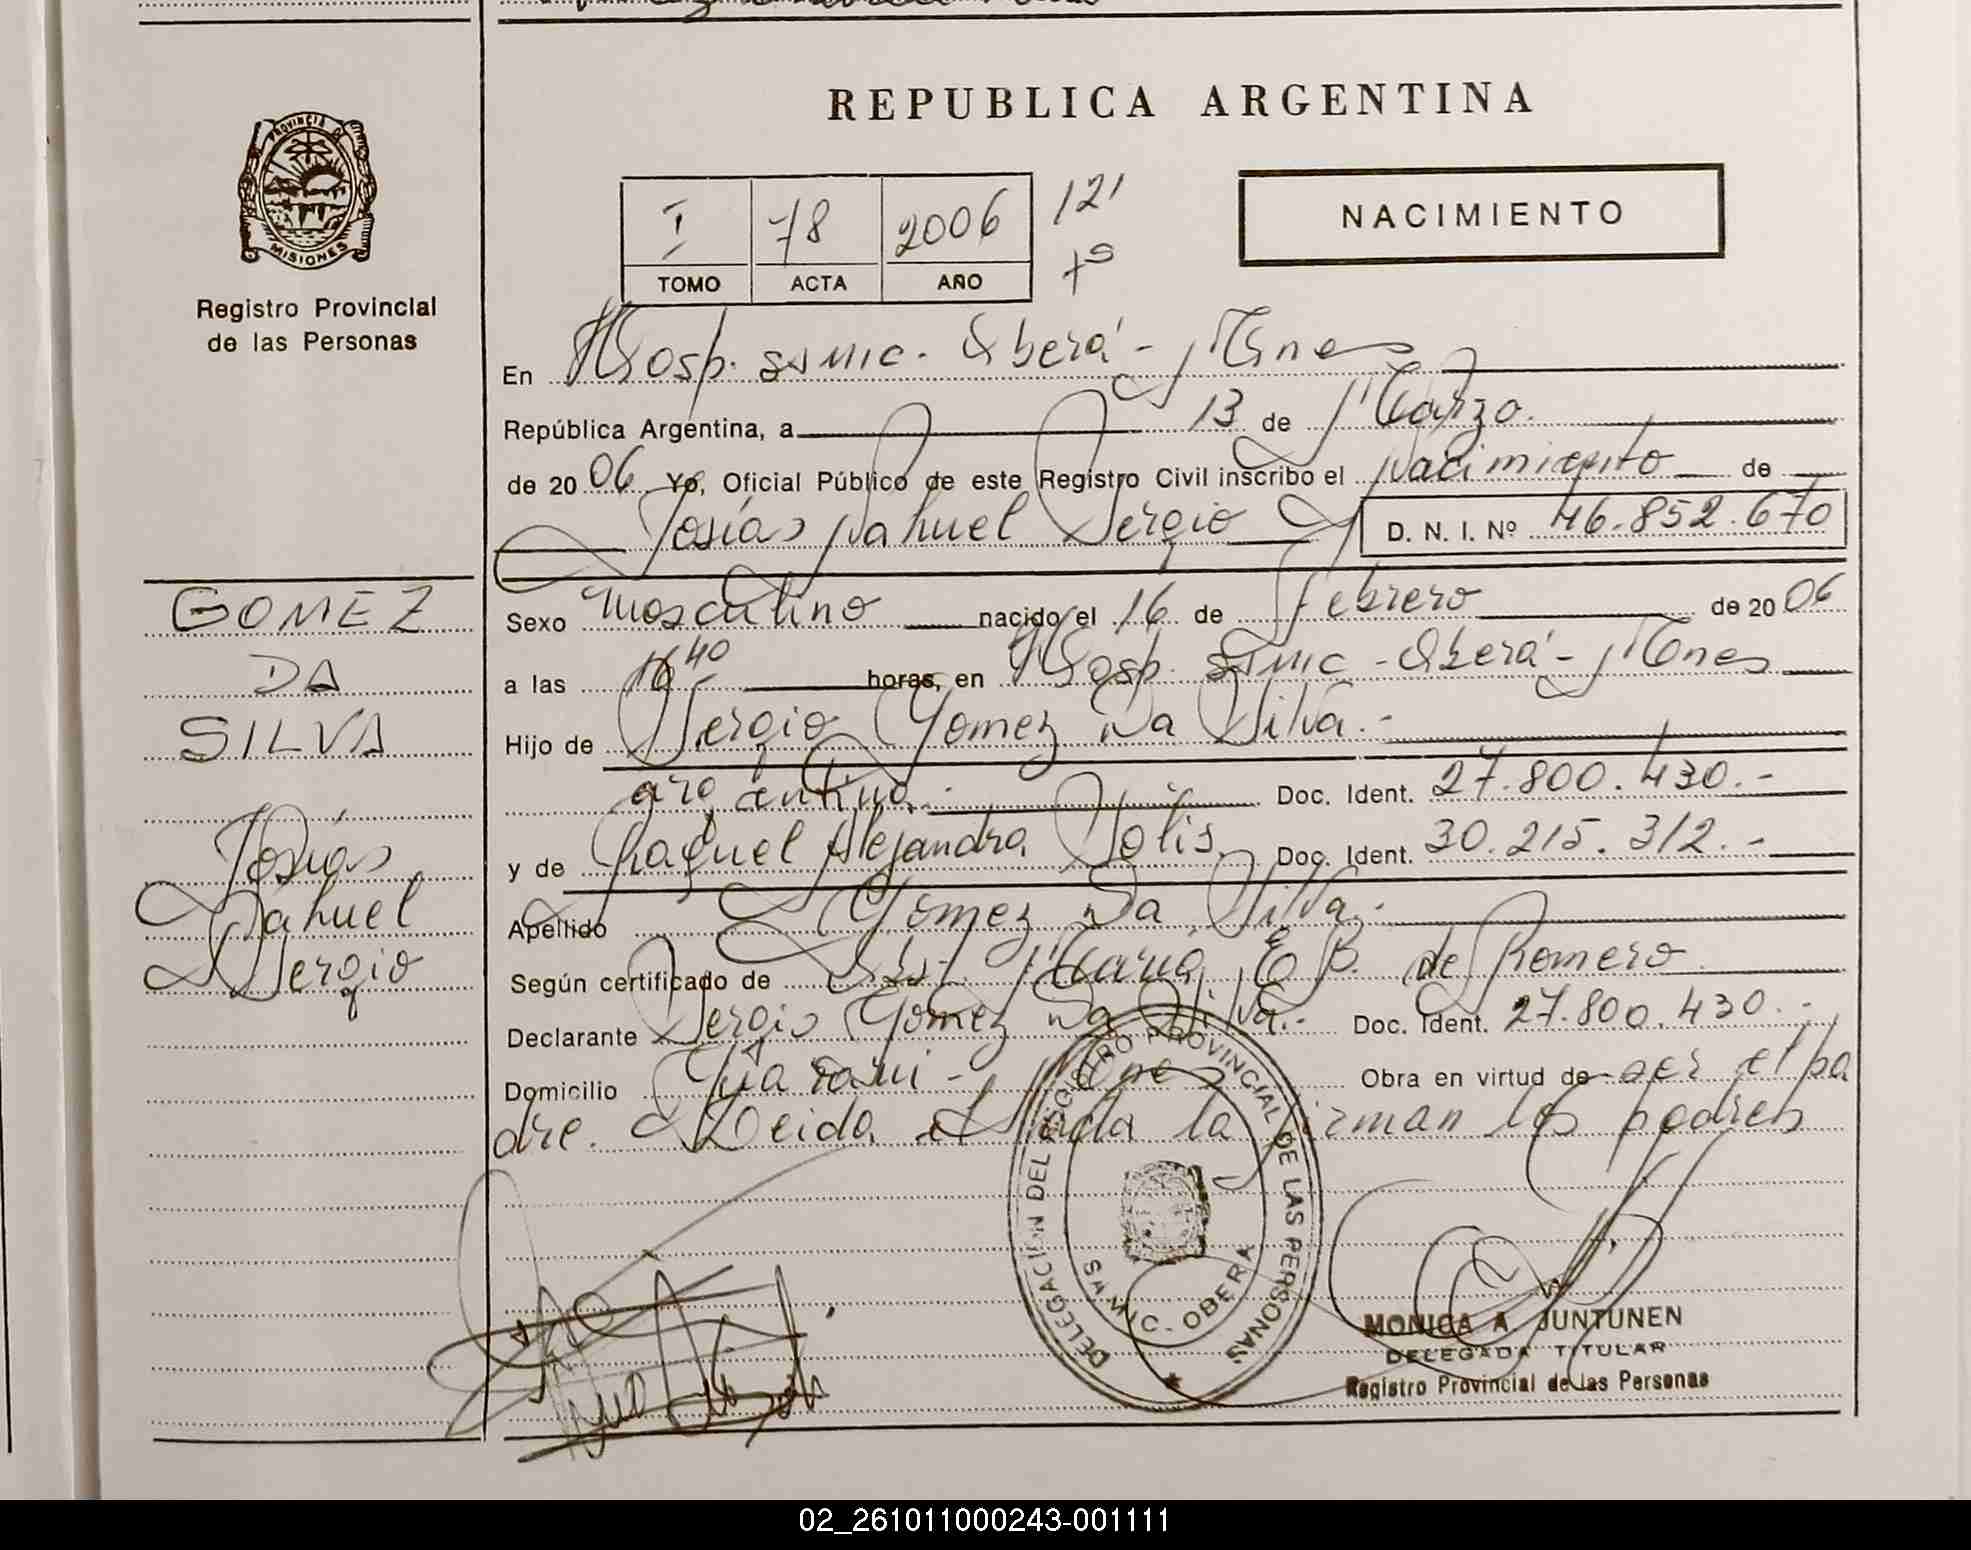 REPUBLICA ARGENTINA
PROVINCIA DE
MISIONES
Registro Provincial
de las Personas
I 78 2006 121
TOMO ACTA AÑO
NACIMIENTO
En Hosp. SAMIC - Oberá - Mnes
República Argentina, a 13 de Marzo.
de 20 06 Yo, Oficial Público de este Registro Civil inscribo el Nacimiento de
Josías Nahuel Sergio D. N. I. Nº 46.852.670
GOMEZ
DA
SILVA
Josías
Nahuel
Sergio
Sexo masculino nacido el 16 de febrero de 20 06
a las 16 40 horas, en Hosp. SAMIC - Oberá - Mnes
Hijo de Sergio Gomez Da Silva.-
argentino.- Doc. Ident. 27.800.430.-
y de Raquel Alejandra Solis. Doc. Ident. 30.215.312.-
Apellido Gomez Da Silva.-
Según certificado de Obst. María E B. de Romero
Declarante Sergio Gomez Da Silva.- Doc. Ident. 27.800.430.-
Domicilio Guaraní - Mnes Obra en virtud de ser el pa
dre. Leida el Acta la firman los padres
DELEGACION DEL REGISTRO PROVINCIAL DE LAS PERSONAS
SAMIC - OBERA
MONICA A. JUNTUNEN
DELEGADA TITULAR
Registro Provincial de las Personas
02_261011000243-001111